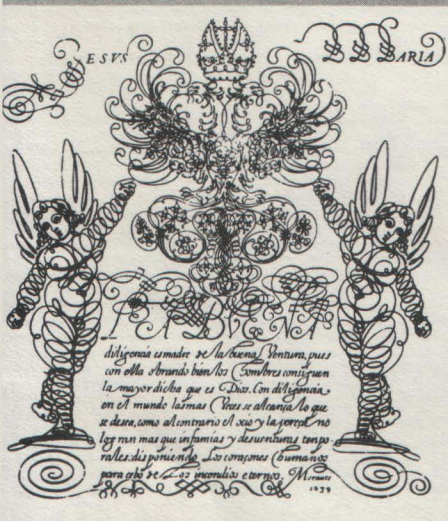 IESVS MARIA
LA BVENA
diligencia es madre de la buena Ventura, pues
con ella obrando bien los Hombres consiguen
la mayor dicha que es Dios. Con diligencia
en el mundo las mas Veces se alcança lo que
se desea, como al contrario el ocio y la pereça no
logran mas que infamias y desuenturas tenpo
rales. disponiendo Los coraçones humanos
para cebo de Los incendios eternos. Morante